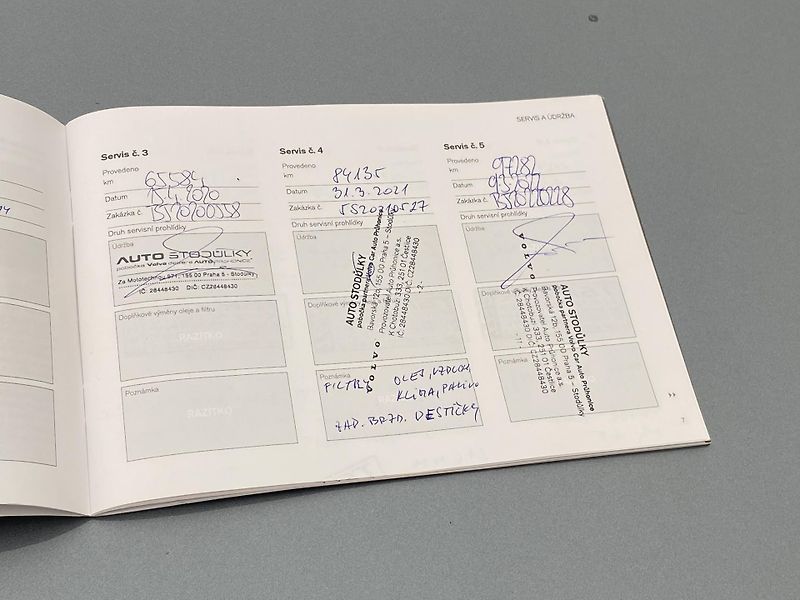 SERVIS A ÚDRŽBA
Servis č. 3
Provedeno
km 65584
Datum 15.4.2020
Zakázka č.
Druh servisní prohlídky
Údržba
AUTO STODŮLKY
pobočka Volvo dealera AUTO PRŮHONICE
Za Mototechnou 971, 155 00 Praha 5 - Stodůlky
IČ: 28448430 DIČ: CZ28448430
Doplňkové výměny oleje a filtru
RAZÍTKO
Poznámka
RAZÍTKO
Servis č. 4
Provedeno
km 84135
Datum 31.3.2021
Zakázka č. 5520210527
Druh servisní prohlídky
Údržba
AUTO STODŮLKY
pobočka partnera Volvo Car Auto Průhonice
Bavorská 12b, 155 00 Praha 5 - Stodůlky
Provozovatel Auto Průhonice a.s.
K Chotobuzi 333, 251 01 Čestlice
IČ: 28448430 DIČ: CZ28448430
- 2 -
VOLVO
Doplňkové výměny
Poznámka
FILTRY OLEJ, VZDUCH,
KLIMA, PALIVO
ZAD. BRZD. DESTIČKY
Servis č. 5
Provedeno
km 97282
Datum
Zakázka č.
Druh servisní prohlídky
Údržba
VOLVO
AUTO STODŮLKY
pobočka partnera Volvo Car Auto Průhonice
Bavorská 12b, 155 00 Praha 5 - Stodůlky
Provozovatel Auto Průhonice a.s.
K Chotobuzi 333, 251 01 Čestlice
IČ: 28448430 DIČ: CZ28448430
- 11 -
Doplňkové výměny
Poznámka
7